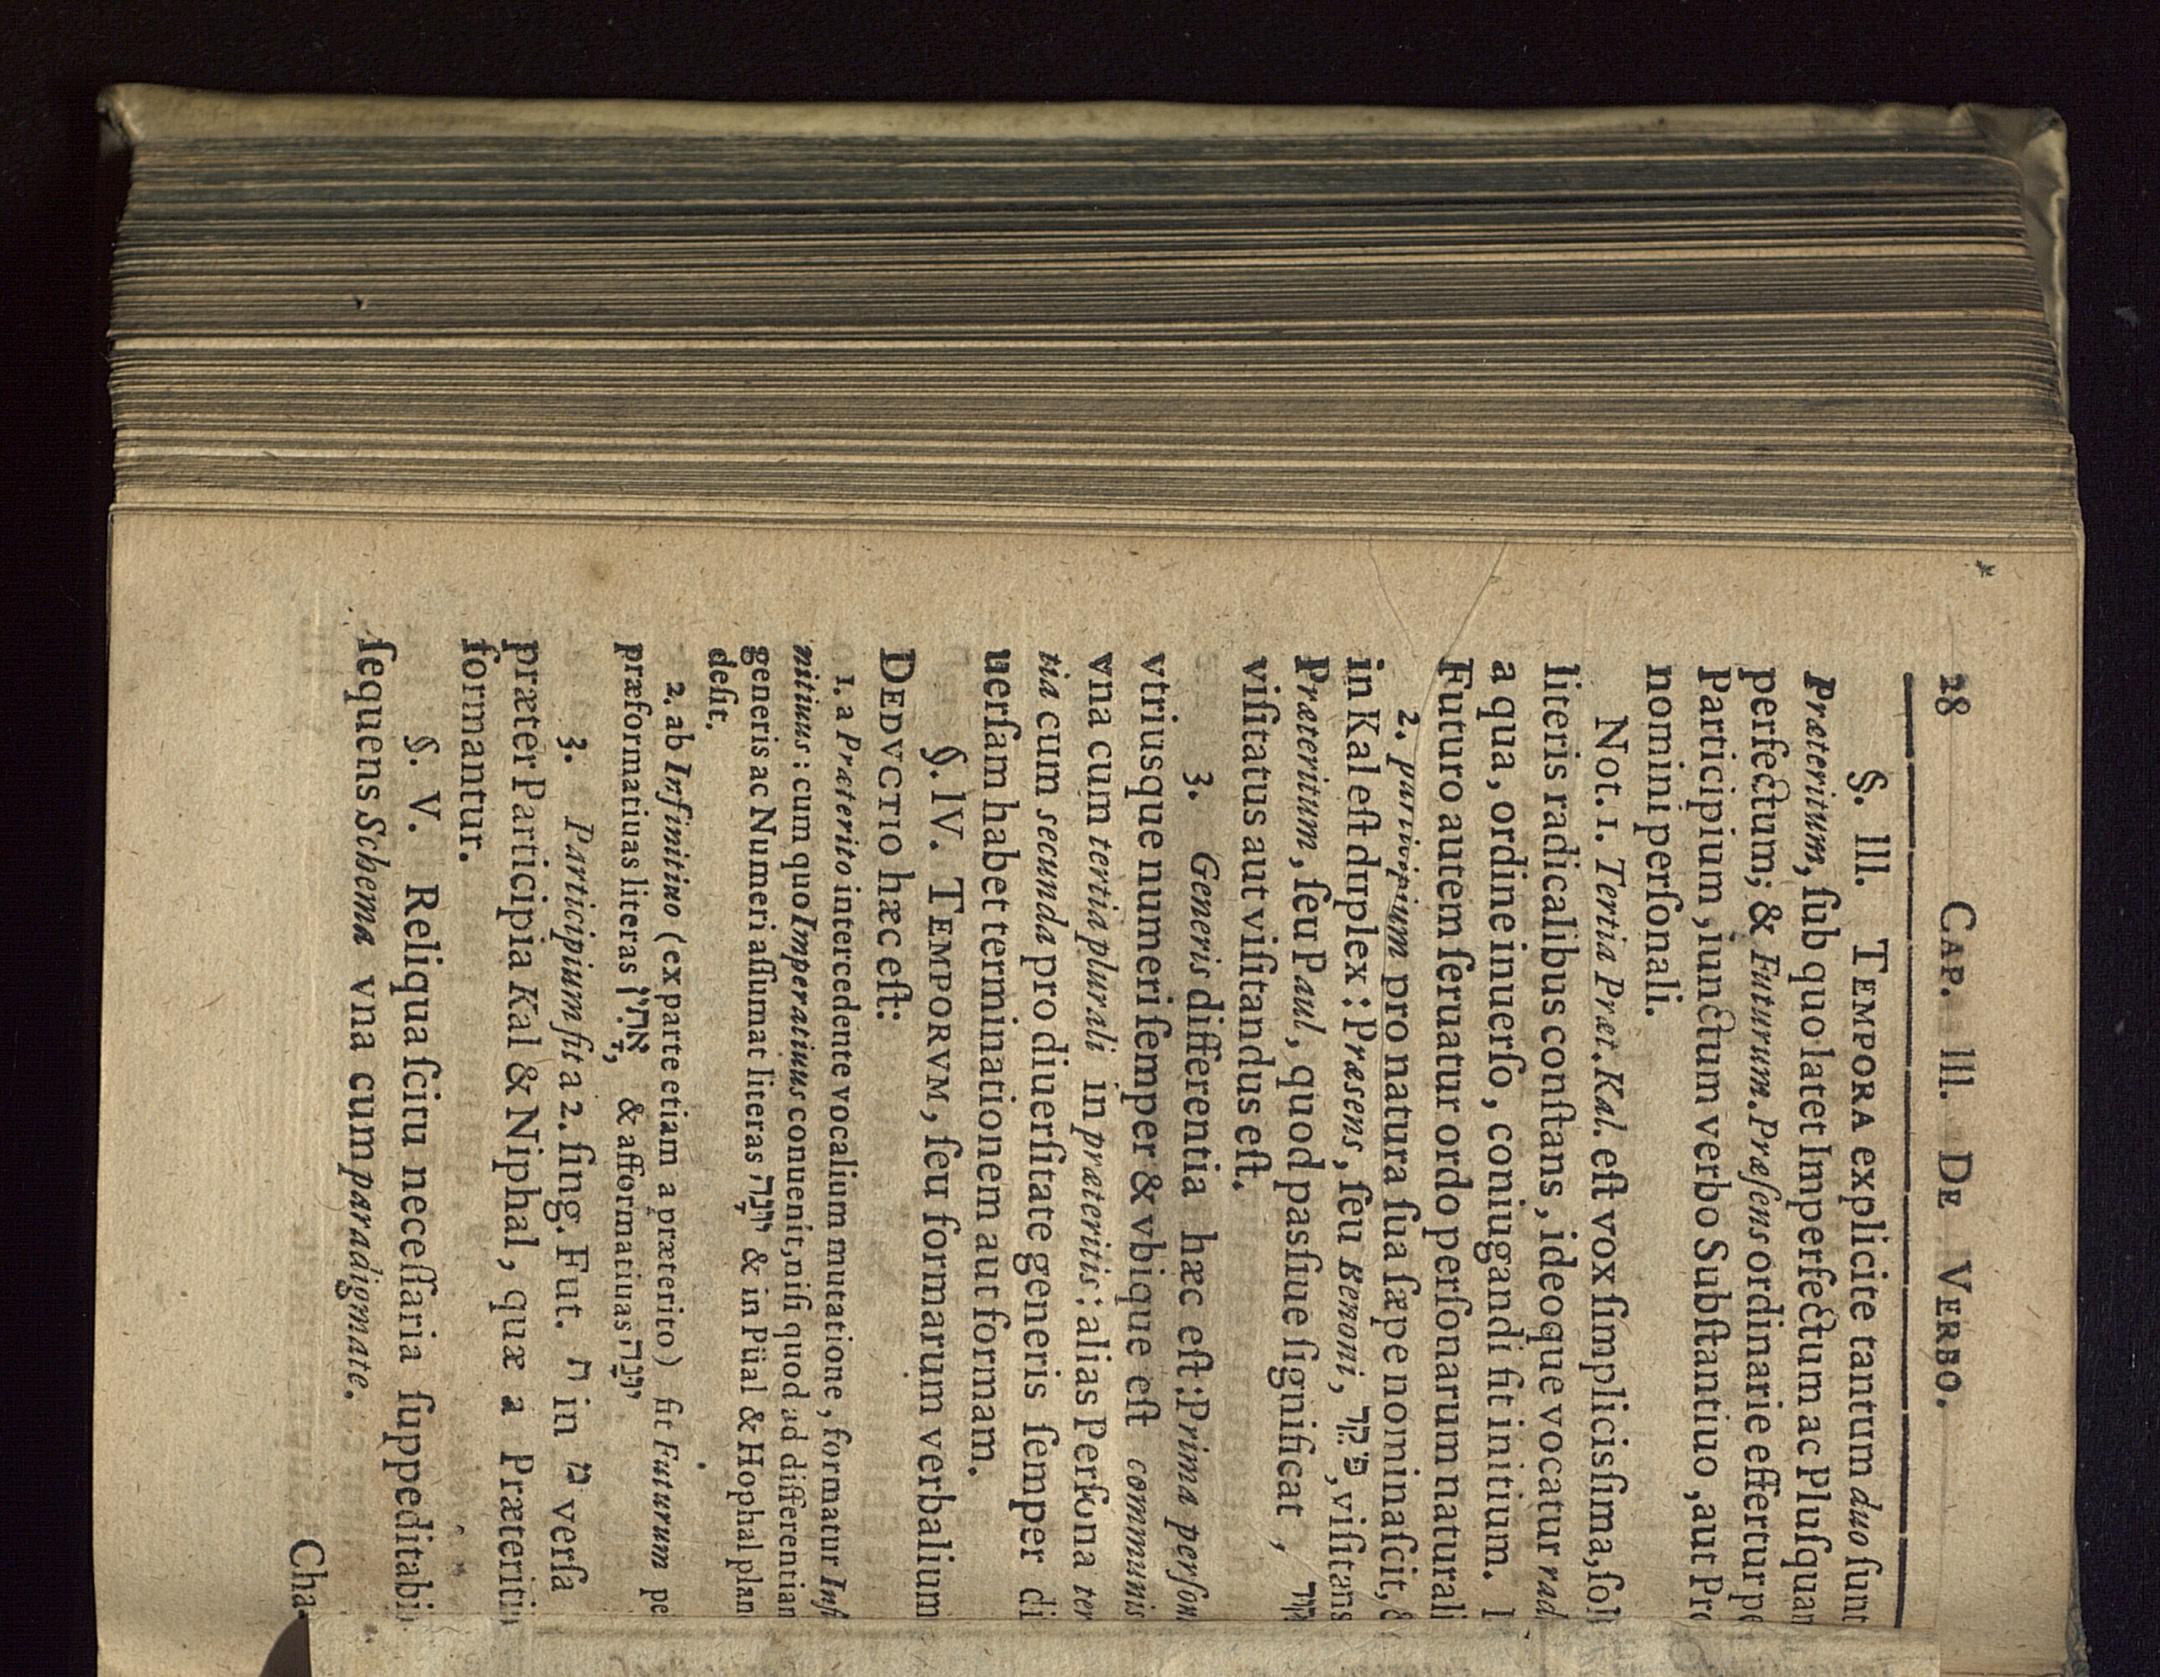 28 CAP. III. DE VERBO.
§. III. TEMPORA explicite tantum duo ſunt
Præteritum, ſub quo latet Imperfectum ac Pluſquam
perfectum; & Futurum. Præſens ordinarie effertur pe
Participium, iunctum verbo Subſtantiuo, aut Pro
nomini perſonali.
Not. 1. Tertia Præt. Kal. eſt vox ſimplicisſima, ſoli
literis radicalibus conſtans, ideoque vocatur rad
a qua, ordine inuerſo, coniugandi fit initium. I
Futuro autem ſeruatur ordo perſonarum naturali
2. Participium pro natura ſua ſæpe nominaſcit, &
in Kal eſt duplex: Præsens, ſeu Benoni, פֹּקֵד, viſitans
Præteritum, ſeu Paul, quod pasſiue ſignificat,
viſitatus aut viſitandus eſt.
3. Generis differentia hæc eſt: Prima perſon
vtriusque numeri ſemper & vbique eſt communis
vna cum tertia plurali in præteritis: alias Perſona ter
tia cum secunda pro diuerſitate generis ſemper di
uerſam habet terminationem aut formam.
§. IV. TEMPORVM, ſeu formarum verbalium
DEDVCTIO hæc eſt:
1. a Præterito intercedente vocalium mutatione, formatur Infi
nitiuus: cum quo Imperatiuus conuenit, niſi quod ad differentian
generis ac Numeri aſſumat literas יוּנָה & in Püal & Hophal plan
deſit.
2. ab Infinitiuo (ex parte etiam a præterito) fit Futurum pe
præformatiuas literas אֵתָין, & afformatiuas יוּנָה
3. Participium fit a 2. ſing. Fut. ת in מ verſa
præter Participia Kal & Niphal, quæ a Præteritis
formantur.
§. V. Reliqua ſcitu neceſſaria ſuppeditabit
ſequens Schema vna cum paradigmate.
Cha-